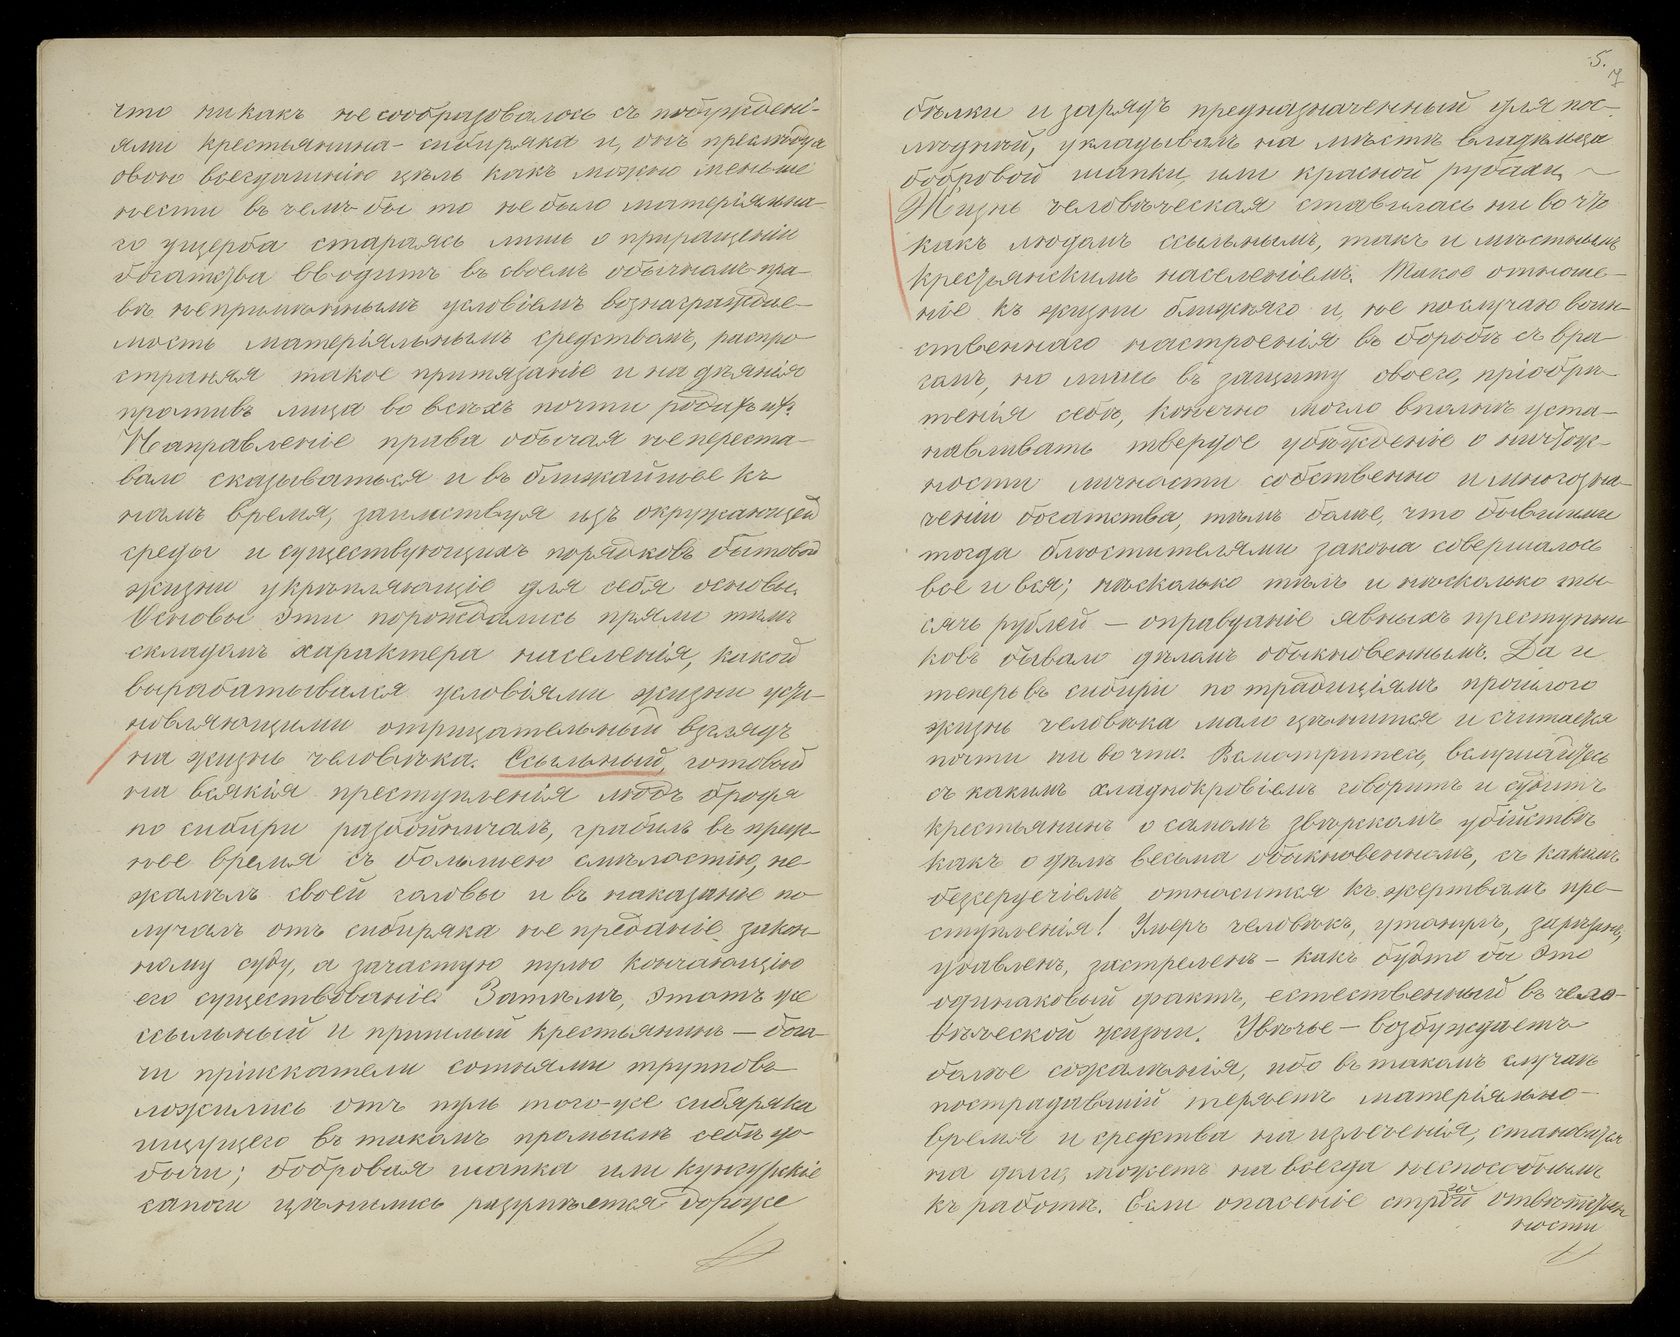 что никакъ не сообразовалось съ побужденi-
ями крестьянина-сибиряка и, онъ преслѣдуя
свою всегдашнюю цѣль какъ можно меньше
нести въ чемъ бы то не было матерiяльна-
го ущерба стараясь лишь о приращенiи
богатства вводитъ въ своемъ обычномъ пра-
вѣ непримѣннымъ условiемъ вознагражде-
мость матерiяльнымъ средствамъ, распро-
страняя такое притязанiе и на дѣянiя
противъ лица во всѣхъ почти родахъ ихъ.
Направленiе права обычая не переста-
вало сказываться и въ ближайшее къ
намъ время, заимствуя изъ окружающей
среды и существующихъ порядковъ бытовой
жизни укрѣпляющiе для себя основы.
Основы эти порождались прямо тѣмъ
складомъ характера населенiя, какой
вырабатывался условiями жизни уста-
новляющими отрицательный взглядъ
на жизнь человѣка. Ссыльный, готовый
на всякiя преступленiя людъ бродя
по сибири разбойничалъ, грабилъ въ преж-
нее время съ большею смѣлостiю, не
жалѣлъ своей головы и въ наказанiе по-
лучалъ отъ сибиряка не преданiе закон-
ному суду, а зачастую пулю кончающую
его существованiе. Затѣмъ, этотъ же
ссыльный и пришлый крестьянинъ – бога-
чи прiискатели сотнями трупповъ
ложились отъ пуль того-же сибиряка
ищущего въ такомъ промыслѣ себѣ до-
бычи; бобровая шапка или кунгурскiе
сапоги цѣнились разумѣется дороже
5.
бѣлки и зарядъ предназначенный для пос-
лѣдней, укладывалъ на мѣстѣ владѣльца
бобровой шапки или красной рубахи, –
Жизнь человѣческая ставилась ни во что
какъ людомъ ссыльнымъ, такъ и мѣстнымъ
крестьянскимъ населенiемъ. Такое отноше-
нiе къ жизни ближняго и, не по случаю воин-
ственнаго настроенiя въ борьбѣ съ вра-
гомъ, но лишь въ защиту своего, прiобрѣ-
тенiя себѣ, конечно могло вполнѣ уста-
навливать твердое убѣжденiе о ничтож-
ности личности собственно и многозна-
ченiи богатства, тѣмъ болѣе, что бывшими
тогда блюстителями закона совершалось
все и вся; нѣсколько тѣлъ и нѣсколько ты-
сячъ рублей – оправданiе явныхъ преступни-
ковъ бывало дѣломъ обыкновеннымъ. Да и
теперь въ сибири по традицiямъ прошлого
жизнь человѣка мало цѣнится и считается
почти ни во что. Всмотритесь, вслушайтесь
съ какимъ хладнокровiемъ говоритъ и судитъ
крестьянинъ о самомъ звѣрскомъ убiйствѣ
какъ о дѣлѣ весьма обыкновенномъ, съ какимъ
безсердечiемъ относится къ жертвамъ пре-
ступленiя! Умеръ человѣкъ, утонулъ, зарѣзанъ,
удавленъ, застреленъ – какъ будто бы это
одинаковый фактъ, естественный въ чело-
вѣческой жизни. Увѣчье – возбуждаетъ
болѣе сожалѣнiя, ибо въ такомъ случаѣ
пострадавшiй теряетъ матерiяльно –
время и средства на излеченiя, становится
на долго, можетъ на всегда неспособнымъ
къ работѣ. Если опасенiе строгой ответствен-
ности